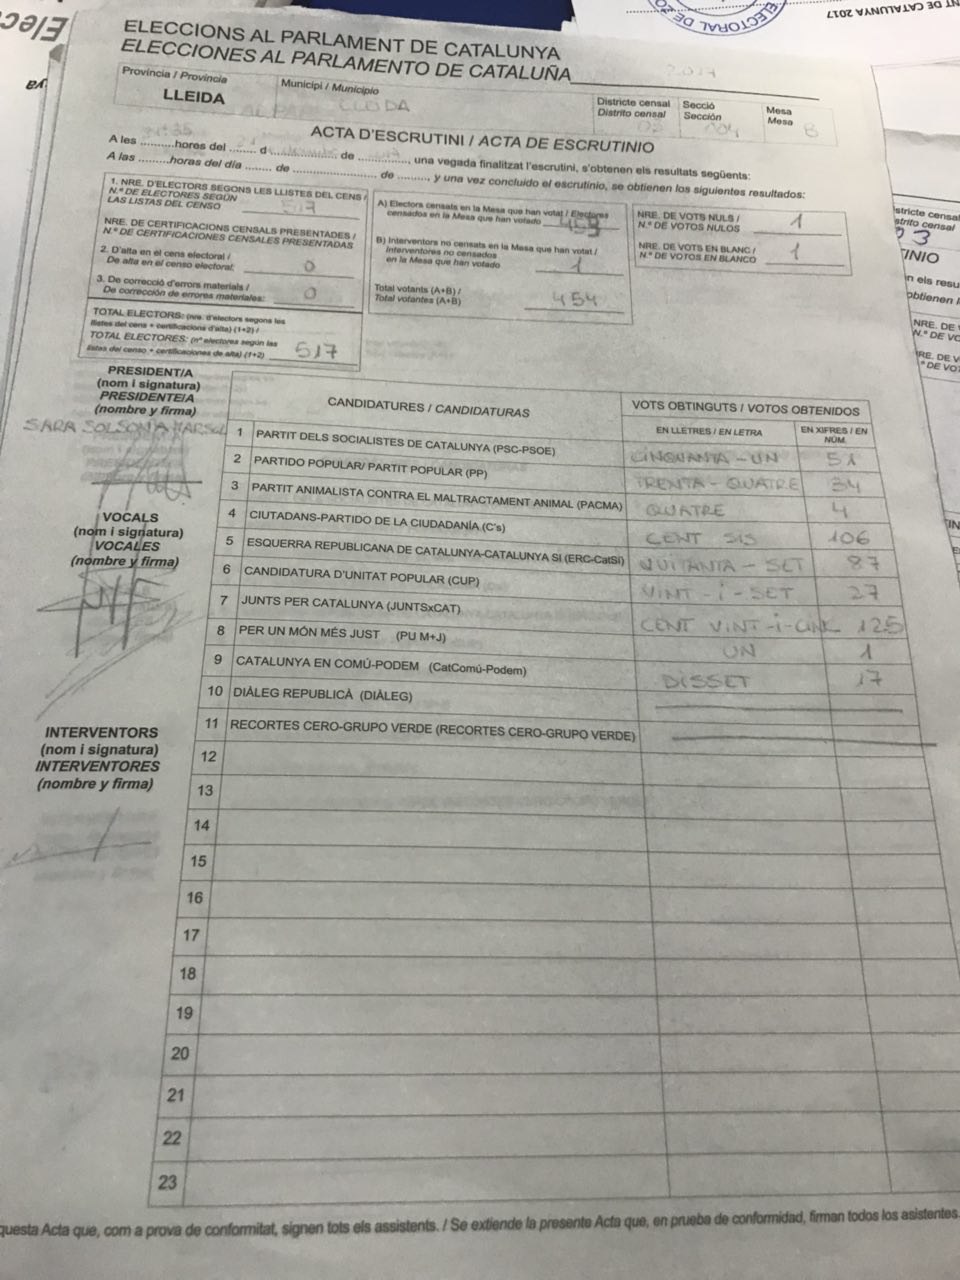 ELECCIONS AL PARLAMENT DE CATALUNYA
ELECCIONES AL PARLAMENTO DE CATALUÑA 2017
Província / Provincia
LLEIDA
Municipi / Municipio
LLEIDA
Districte censal
Distrito censal
Secció
Sección
Mesa
Mesa B
ACTA D'ESCRUTINI / ACTA DE ESCRUTINIO
A les ......... hores del ........ d .................... de ............, una vegada finalitzat l'escrutini, s'obtenen els resultats següents:
A las ......... horas del día ....... de ........................ de ........, y una vez concluido el escrutinio, se obtienen los siguientes resultados:
1. NRE. D'ELECTORS SEGONS LES LLISTES DEL CENS /
N.º DE ELECTORES SEGÚN
LAS LISTAS DEL CENSO 517
NRE. DE CERTIFICACIONS CENSALS PRESENTADES /
N.º DE CERTIFICACIONES CENSALES PRESENTADAS
2. D'alta en el cens electoral /
De alta en el censo electoral: 0
3. De correcció d'errors materials /
De corrección de errores materiales: 0
TOTAL ELECTORS: (nre. d'electors segons les
llistes del cens + certificacions d'alta) (1+2) /
TOTAL ELECTORES: (nº electores según las
listas del censo + certificaciones de alta) (1+2) 517
A) Electors censats en la Mesa que han votat / Electores
censados en la Mesa que han votado 453
B) Interventors no censats en la Mesa que han votat /
Interventores no censados
en la Mesa que han votado 1
Total votants (A+B) /
Total votantes (A+B) 454
NRE. DE VOTS NULS /
N.º DE VOTOS NULOS 1
NRE. DE VOTS EN BLANC /
N.º DE VOTOS EN BLANCO 1
PRESIDENT/A
(nom i signatura)
PRESIDENTE/A
(nombre y firma)
SARA SOLSONA
VOCALS
(nom i signatura)
VOCALES
(nombre y firma)
INTERVENTORS
(nom i signatura)
INTERVENTORES
(nombre y firma)
CANDIDATURES / CANDIDATURAS
VOTS OBTINGUTS / VOTOS OBTENIDOS
EN LLETRES / EN LETRA
EN XIFRES / EN NÚM.
1 PARTIT DELS SOCIALISTES DE CATALUNYA (PSC-PSOE) CINQUANTA-UN 51
2 PARTIDO POPULAR/ PARTIT POPULAR (PP) TRENTA-QUATRE 34
3 PARTIT ANIMALISTA CONTRA EL MALTRACTAMENT ANIMAL (PACMA) QUATRE 4
4 CIUTADANS-PARTIDO DE LA CIUDADANÍA (C's) CENT SIS 106
5 ESQUERRA REPUBLICANA DE CATALUNYA-CATALUNYA SI (ERC-CatSí) VUITANTA-SET 87
6 CANDIDATURA D'UNITAT POPULAR (CUP) VINT-I-SET 27
7 JUNTS PER CATALUNYA (JUNTSxCAT) CENT VINT-I-CINC 125
8 PER UN MÓN MÉS JUST (PU M+J) UN 1
9 CATALUNYA EN COMÚ-PODEM (CatComú-Podem) DISSET 17
10 DIÀLEG REPUBLICÀ (DIÀLEG)
11 RECORTES CERO-GRUPO VERDE (RECORTES CERO-GRUPO VERDE)
12
13
14
15
16
17
18
19
20
21
22
23
questa Acta que, com a prova de conformitat, signen tots els assistents. / Se extiende la presente Acta que, en prueba de conformidad, firman todos los asistentes.